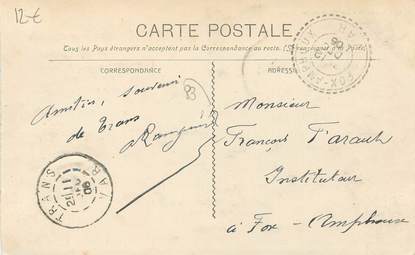 12-€
CARTE POSTALE
Tous les Pays étrangers n'acceptent pas la Correspondance au recto. (Se renseigner à la Poste).
CORRESPONDANCE
ADRESSE
FOX-AMPHOUX VAR
83
Amitiés, souvenir
de Trans
TRANS VAR
08
Monsieur
François
Instituteur
à Fox-Amphoux